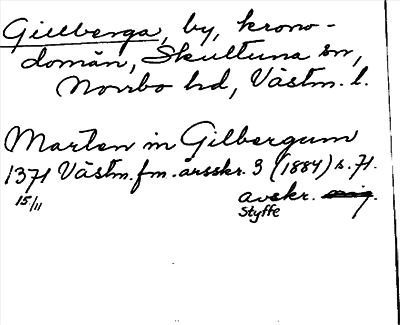 Gillberga, by, krono-
domän, Skultuna sn,
Norrbo hd, Västm. l.
Marten in Gilbergum
1371 Västm. fm. årsskr. 3 (1884) s. 71.
15/11 avskr. orig.
Styffe